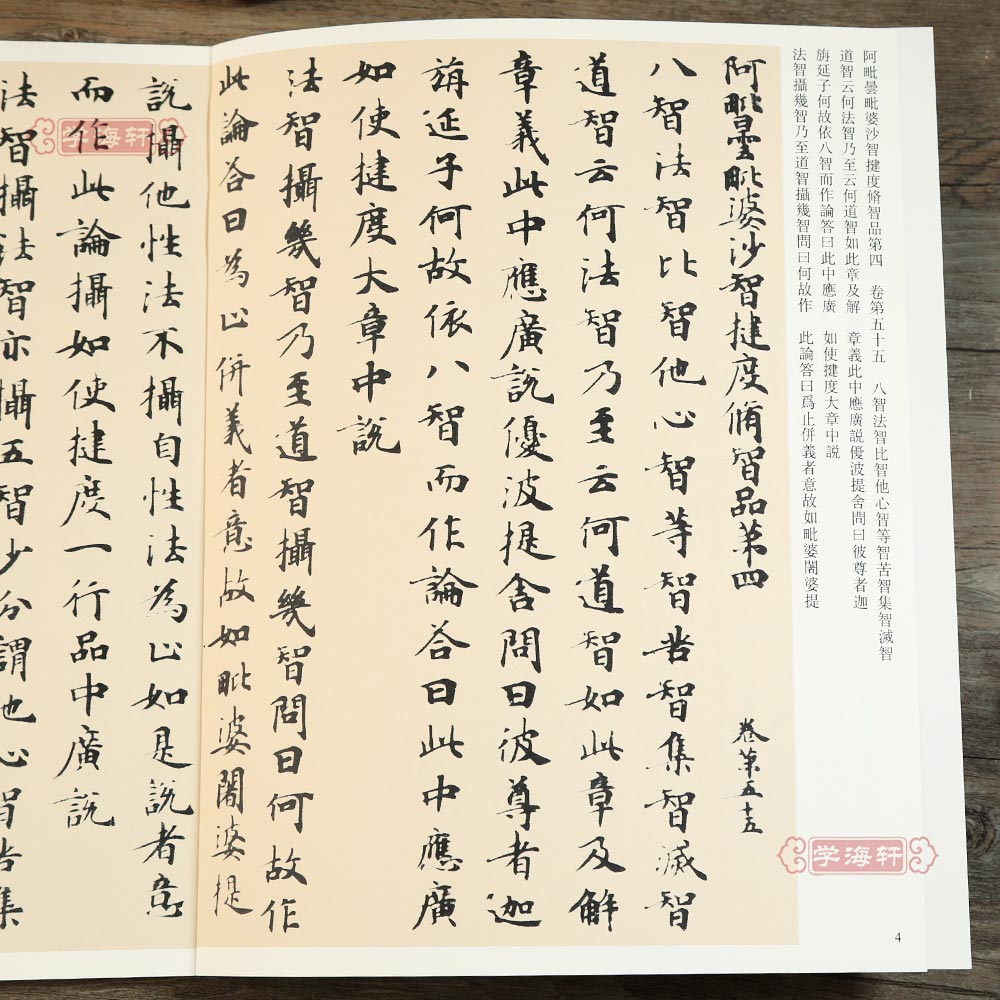 阿毗曇毗婆沙智揵度脩智品第四 卷第五十五 八智法智比智他心智等智苦智集智滅智
道智云何法智乃至云何道智如此章及解 章義此中應廣説優波提舍問曰彼尊者迦
旃延子何故依八智而作論答曰此中應廣 如使揵度大章中説
法智攝幾智乃至道智攝幾智問曰何故作 此論答曰爲止併義者意故如毗婆闍婆提
阿毗曇毗婆沙智揵度脩智品第四 卷第五十五
八智法智比智他心智等智苦智集智滅智
道智云何法智乃至云何道智如此章及解
章義此中應廣説優波提舍問曰彼尊者迦
旃延子何故依八智而作論答曰此中應廣
如使揵度大章中説
法智攝幾智乃至道智攝幾智問曰何故作
此論答曰為止併義者意故如毗婆闍婆提
説攝他性法不攝自性法為止如是説者意
而作此論攝如使揵度一行品中廣説
法智攝法智亦攝五智少分謂他心智苦集
学海轩
学海轩
4